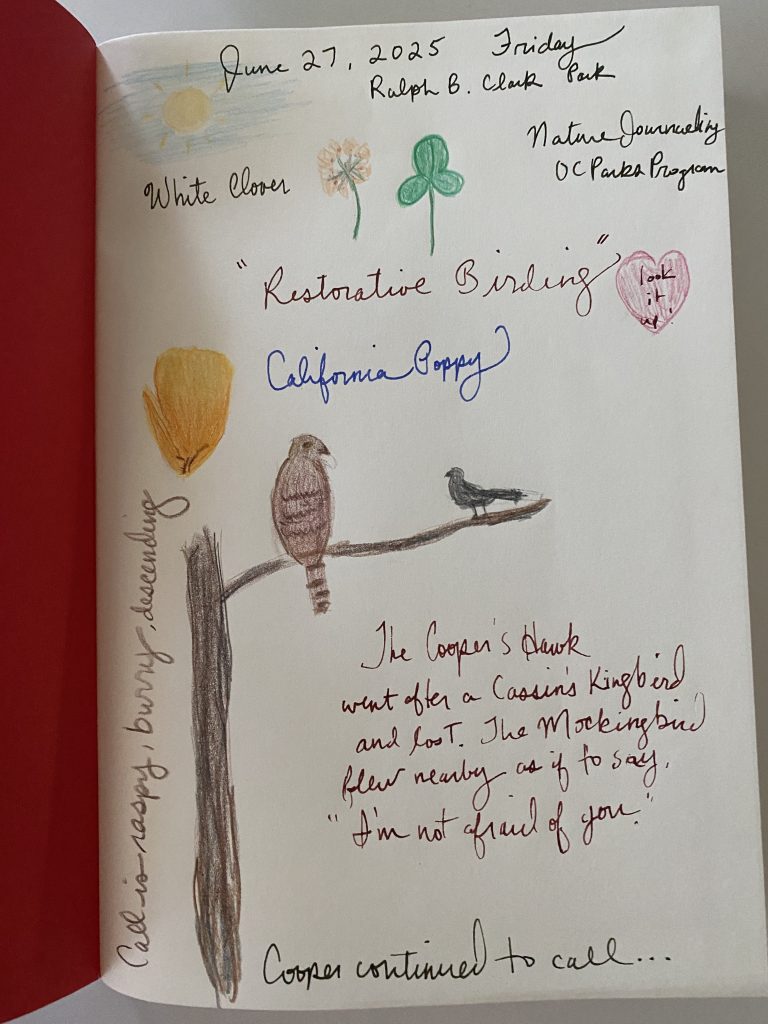 June 27, 2025 Friday
Ralph B. Clark Park
Nature Journaling
OC Parks Program
White Clover
"Restorative Birding"
look
it
up!
California Poppy
Call is raspy, burry, descending
The Cooper's Hawk
went after a Cassin's Kingbird
and lost. The Mockingbird
flew nearby as if to say,
"I'm not afraid of you."
Cooper continued to call...